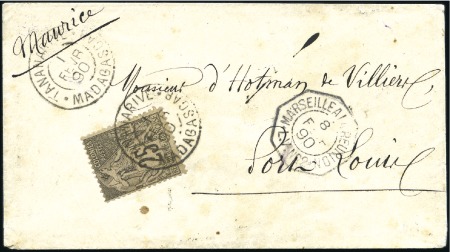 Maurice
TANANARIVE
1
FEVR
90
MADAGASCAR
Monsieur d'Hotman de Villiers
MADAGASCAR
25
MARSEILLE A
8
90
Port Louis